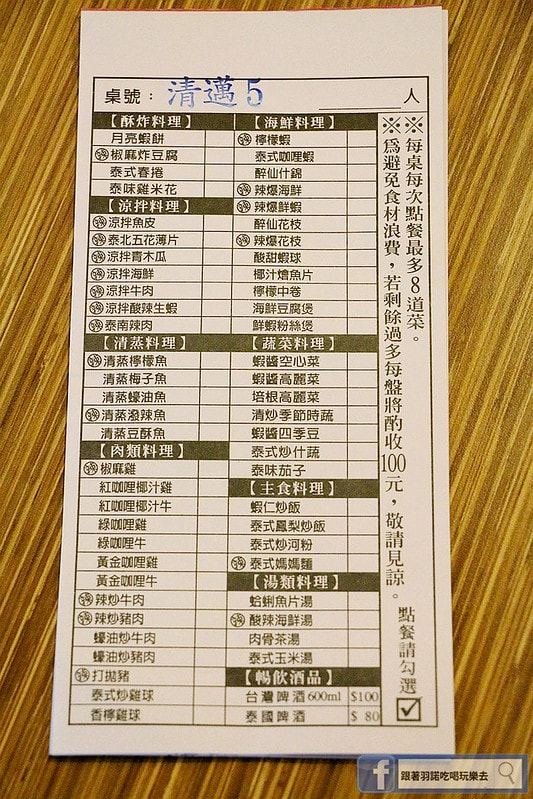 桌號： 清邁5 人
【酥炸料理】
月亮蝦餅
椒麻炸豆腐
泰式春捲
泰味雞米花
【涼拌料理】
涼拌魚皮
泰北五花薄片
涼拌青木瓜
涼拌海鮮
涼拌牛肉
涼拌酸辣生蝦
泰南辣肉
【清蒸料理】
清蒸檸檬魚
清蒸梅子魚
清蒸蠔油魚
清蒸潑辣魚
清蒸豆酥魚
【肉類料理】
椒麻雞
紅咖哩椰汁雞
紅咖哩椰汁牛
綠咖哩雞
綠咖哩牛
黃金咖哩雞
黃金咖哩牛
辣炒牛肉
辣炒豬肉
蠔油炒牛肉
蠔油炒豬肉
打拋豬
泰式炒雞球
香檸雞球
【海鮮料理】
檸檬蝦
泰式咖哩蝦
醉仙什錦
辣爆海鮮
辣爆鮮蝦
醉仙花枝
辣爆花枝
酸甜蝦球
椰汁燴魚片
檸檬中卷
海鮮豆腐煲
鮮蝦粉絲煲
【蔬菜料理】
蝦醬空心菜
蝦醬高麗菜
培根高麗菜
清炒季節時蔬
蝦醬四季豆
泰式炒什蔬
泰味茄子
【主食料理】
蝦仁炒飯
泰式鳳梨炒飯
泰式炒河粉
泰式媽媽麵
【湯類料理】
蛤蜊魚片湯
酸辣海鮮湯
肉骨茶湯
泰式玉米湯
【暢飲酒品】
台灣啤酒600ml $100
泰國啤酒 $ 80
※※每桌每次點餐最多8道菜。
為避免食材浪費，若剩餘過多每盤將酌收100元，敬請見諒。
點餐請勾選
跟著羽諾吃喝玩樂去